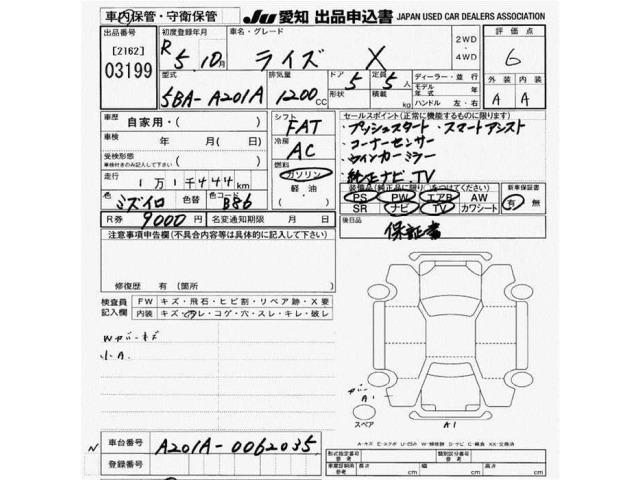 車内保管・守衛保管
JU 愛知 出品申込書 JAPAN USED CAR DEALERS ASSOCIATION
出品番号
[2162]
03199
初度登録年月
R 5.10月
車名・グレード
ライズ X
2WD
4WD
評価点
6
型式
5BA-A201A
排気量
1200cc
ドア 5
形状
定員 5人
積載 kg
ディーラー・並行
モデル年式 年
ハンドル 左・右
外装 内装
A A
車歴
自家用・( )
車検
年 月( 日)
受検形態
車検付きのみ記入して下さい
( )
走行
1万1千444km
色 ミズイロ
色替
色コード B86
R券 9000円
名変通知期限 月 日
シフト
FAT
冷房
AC
燃料
ガソリン
軽・油
( )
セールスポイント(正常に機能するものに限ります)
・プッシュスタート ・スマートアシスト
・コーナーセンサー
・ウインカーミラー
・純正ナビ・TV
装備品(純正品に限り○をつけてください)
PS PW エアB AW
SR ナビ TV カワシート
新車保証書
有 無
後日品
保証書
注意事項申告欄(不具合内容等は具体的に記入して下さい)
修復歴 有(箇所 )
検査員記入欄
FW キズ・飛石・ヒビ割・リペア跡・X要
内装 キズ・ヨゴレ・コゲ・穴・スレ・キレ・破レ
小A
A1
スペア
A1
A-キズ E-エクボ U-凹み W-補修跡 S-サビ C-腐食 XX-交換済
N
車台番号
A201A-0062035
登録番号
形式指定番号
参考
類別区分番号
参考
車車諸元
参考
長さ cm
幅 cm
高さ cm